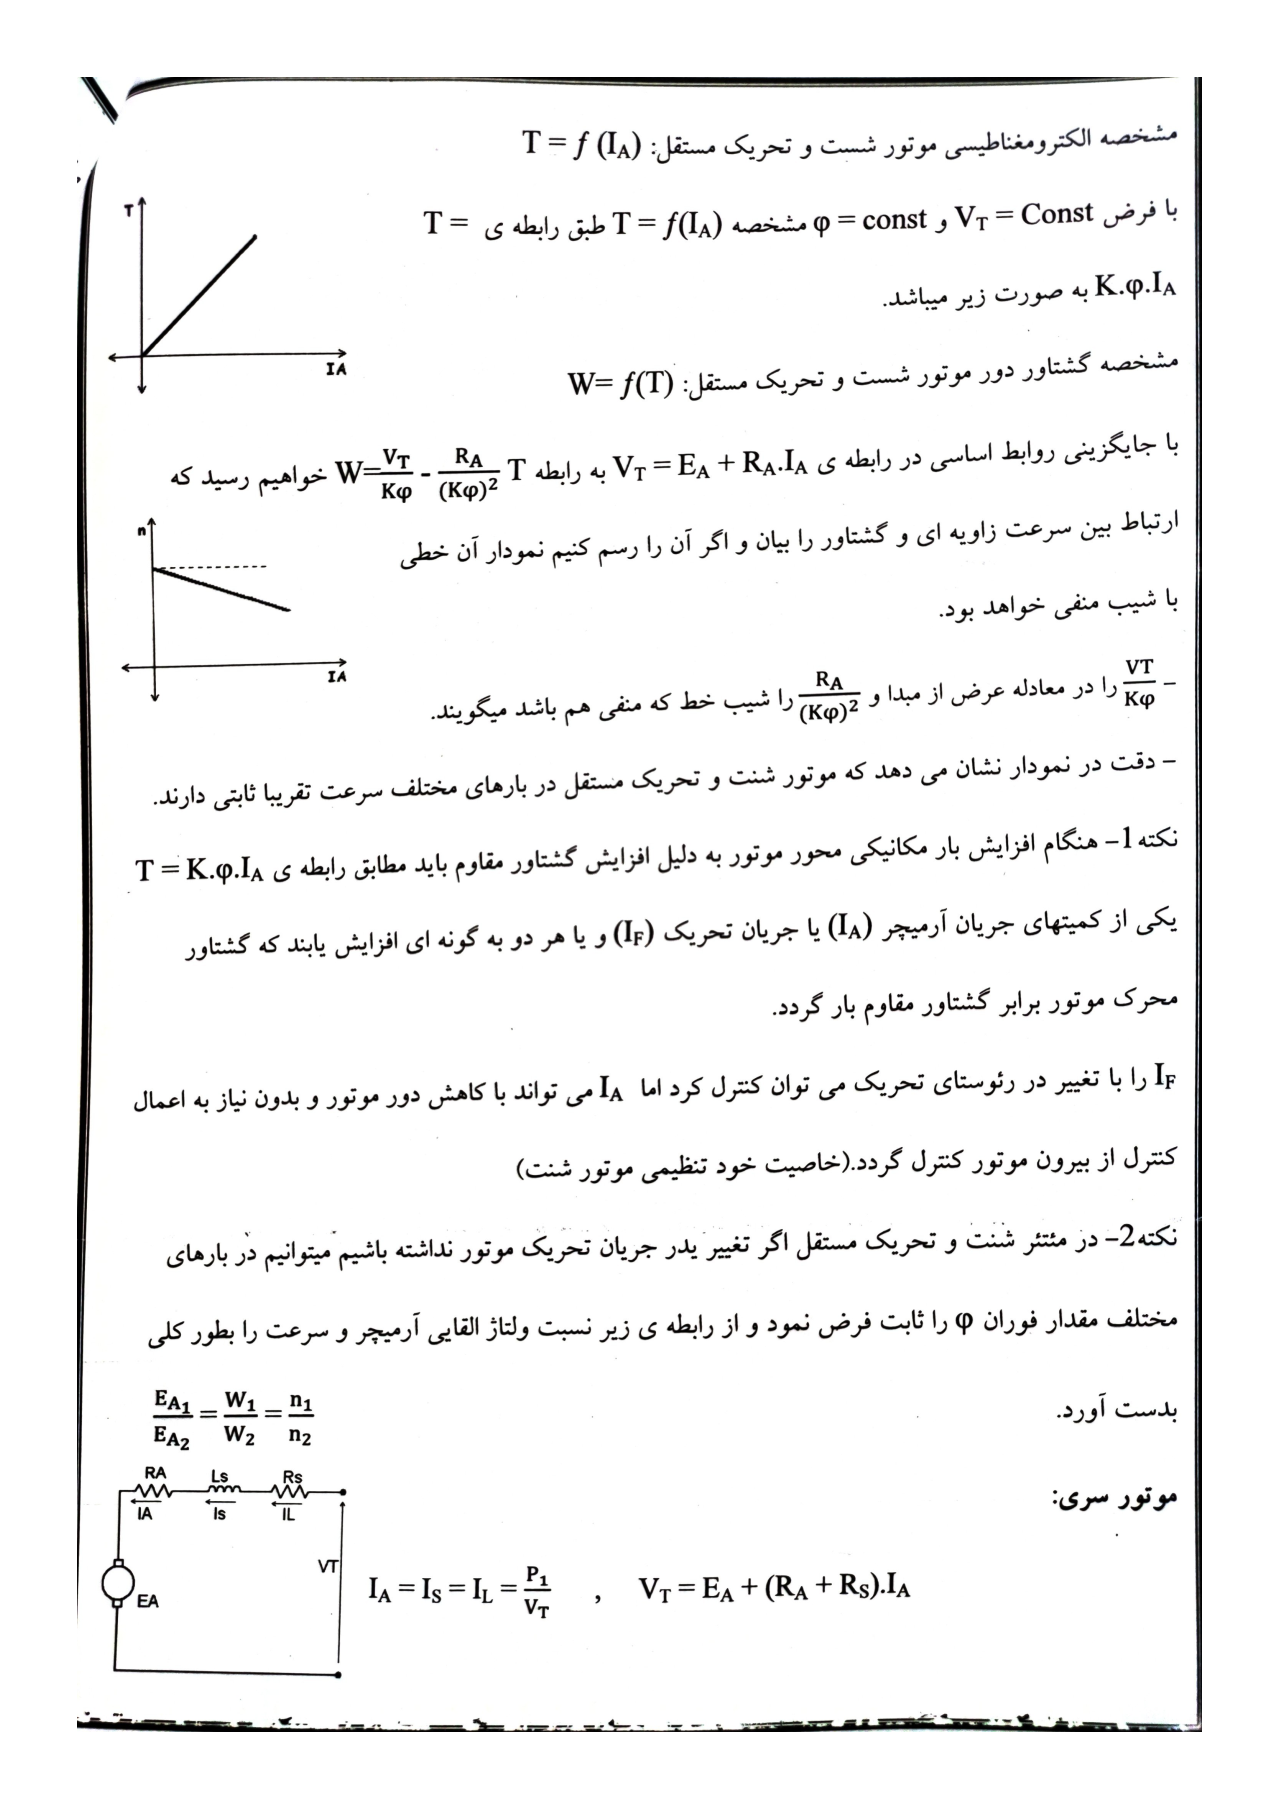 مشخصه الکترومغناطیسی موتور شست و تحریک مستقل: T = f (I_A)
با فرض V_T = Const و φ = const مشخصه T = f(I_A) طبق رابطه ی T =
K.φ.I_A به صورت زیر میباشد.
T
IA
مشخصه گشتاور دور موتور شست و تحریک مستقل: W= f(T)
با جایگزینی روابط اساسی در رابطه ی V_T = E_A + R_A.I_A به رابطه W=V_T/Kφ - R_A/(Kφ)^2 T خواهیم رسید که
ارتباط بین سرعت زاویه ای و گشتاور را بیان و اگر آن را رسم کنیم نمودار آن خطی
با شیب منفی خواهد بود.
n
IA
– VT/Kφ را در معادله عرض از مبدا و R_A/(Kφ)^2 را شیب خط که منفی هم باشد میگویند.
– دقت در نمودار نشان می دهد که موتور شنت و تحریک مستقل در بارهای مختلف سرعت تقریبا ثابتی دارند.
نکته 1– هنگام افزایش بار مکانیکی محور موتور به دلیل افزایش گشتاور مقاوم باید مطابق رابطه ی T = K.φ.I_A
یکی از کمیتهای جریان آرمیچر (I_A) یا جریان تحریک (I_F) و یا هر دو به گونه ای افزایش یابند که گشتاور
محرک موتور برابر گشتاور مقاوم بار گردد.
I_F را با تغییر در رئوستای تحریک می توان کنترل کرد اما I_A می تواند با کاهش دور موتور و بدون نیاز به اعمال
کنترل از بیرون موتور کنترل گردد.(خاصیت خود تنظیمی موتور شنت)
نکته 2– در مئتئر شنت و تحریک مستقل اگر تغییر یدر جریان تحریک موتور نداشته باشیم میتوانیم در بارهای
مختلف مقدار فوران φ را ثابت فرض نمود و از رابطه ی زیر نسبت ولتاژ القایی آرمیچر و سرعت را بطور کلی
بدست آورد.
E_A1/E_A2 = W_1/W_2 = n_1/n_2
موتور سری:
RA Ls Rs
IA Is IL
VT
EA
I_A = I_S = I_L = P_1/V_T , V_T = E_A + (R_A + R_S).I_A